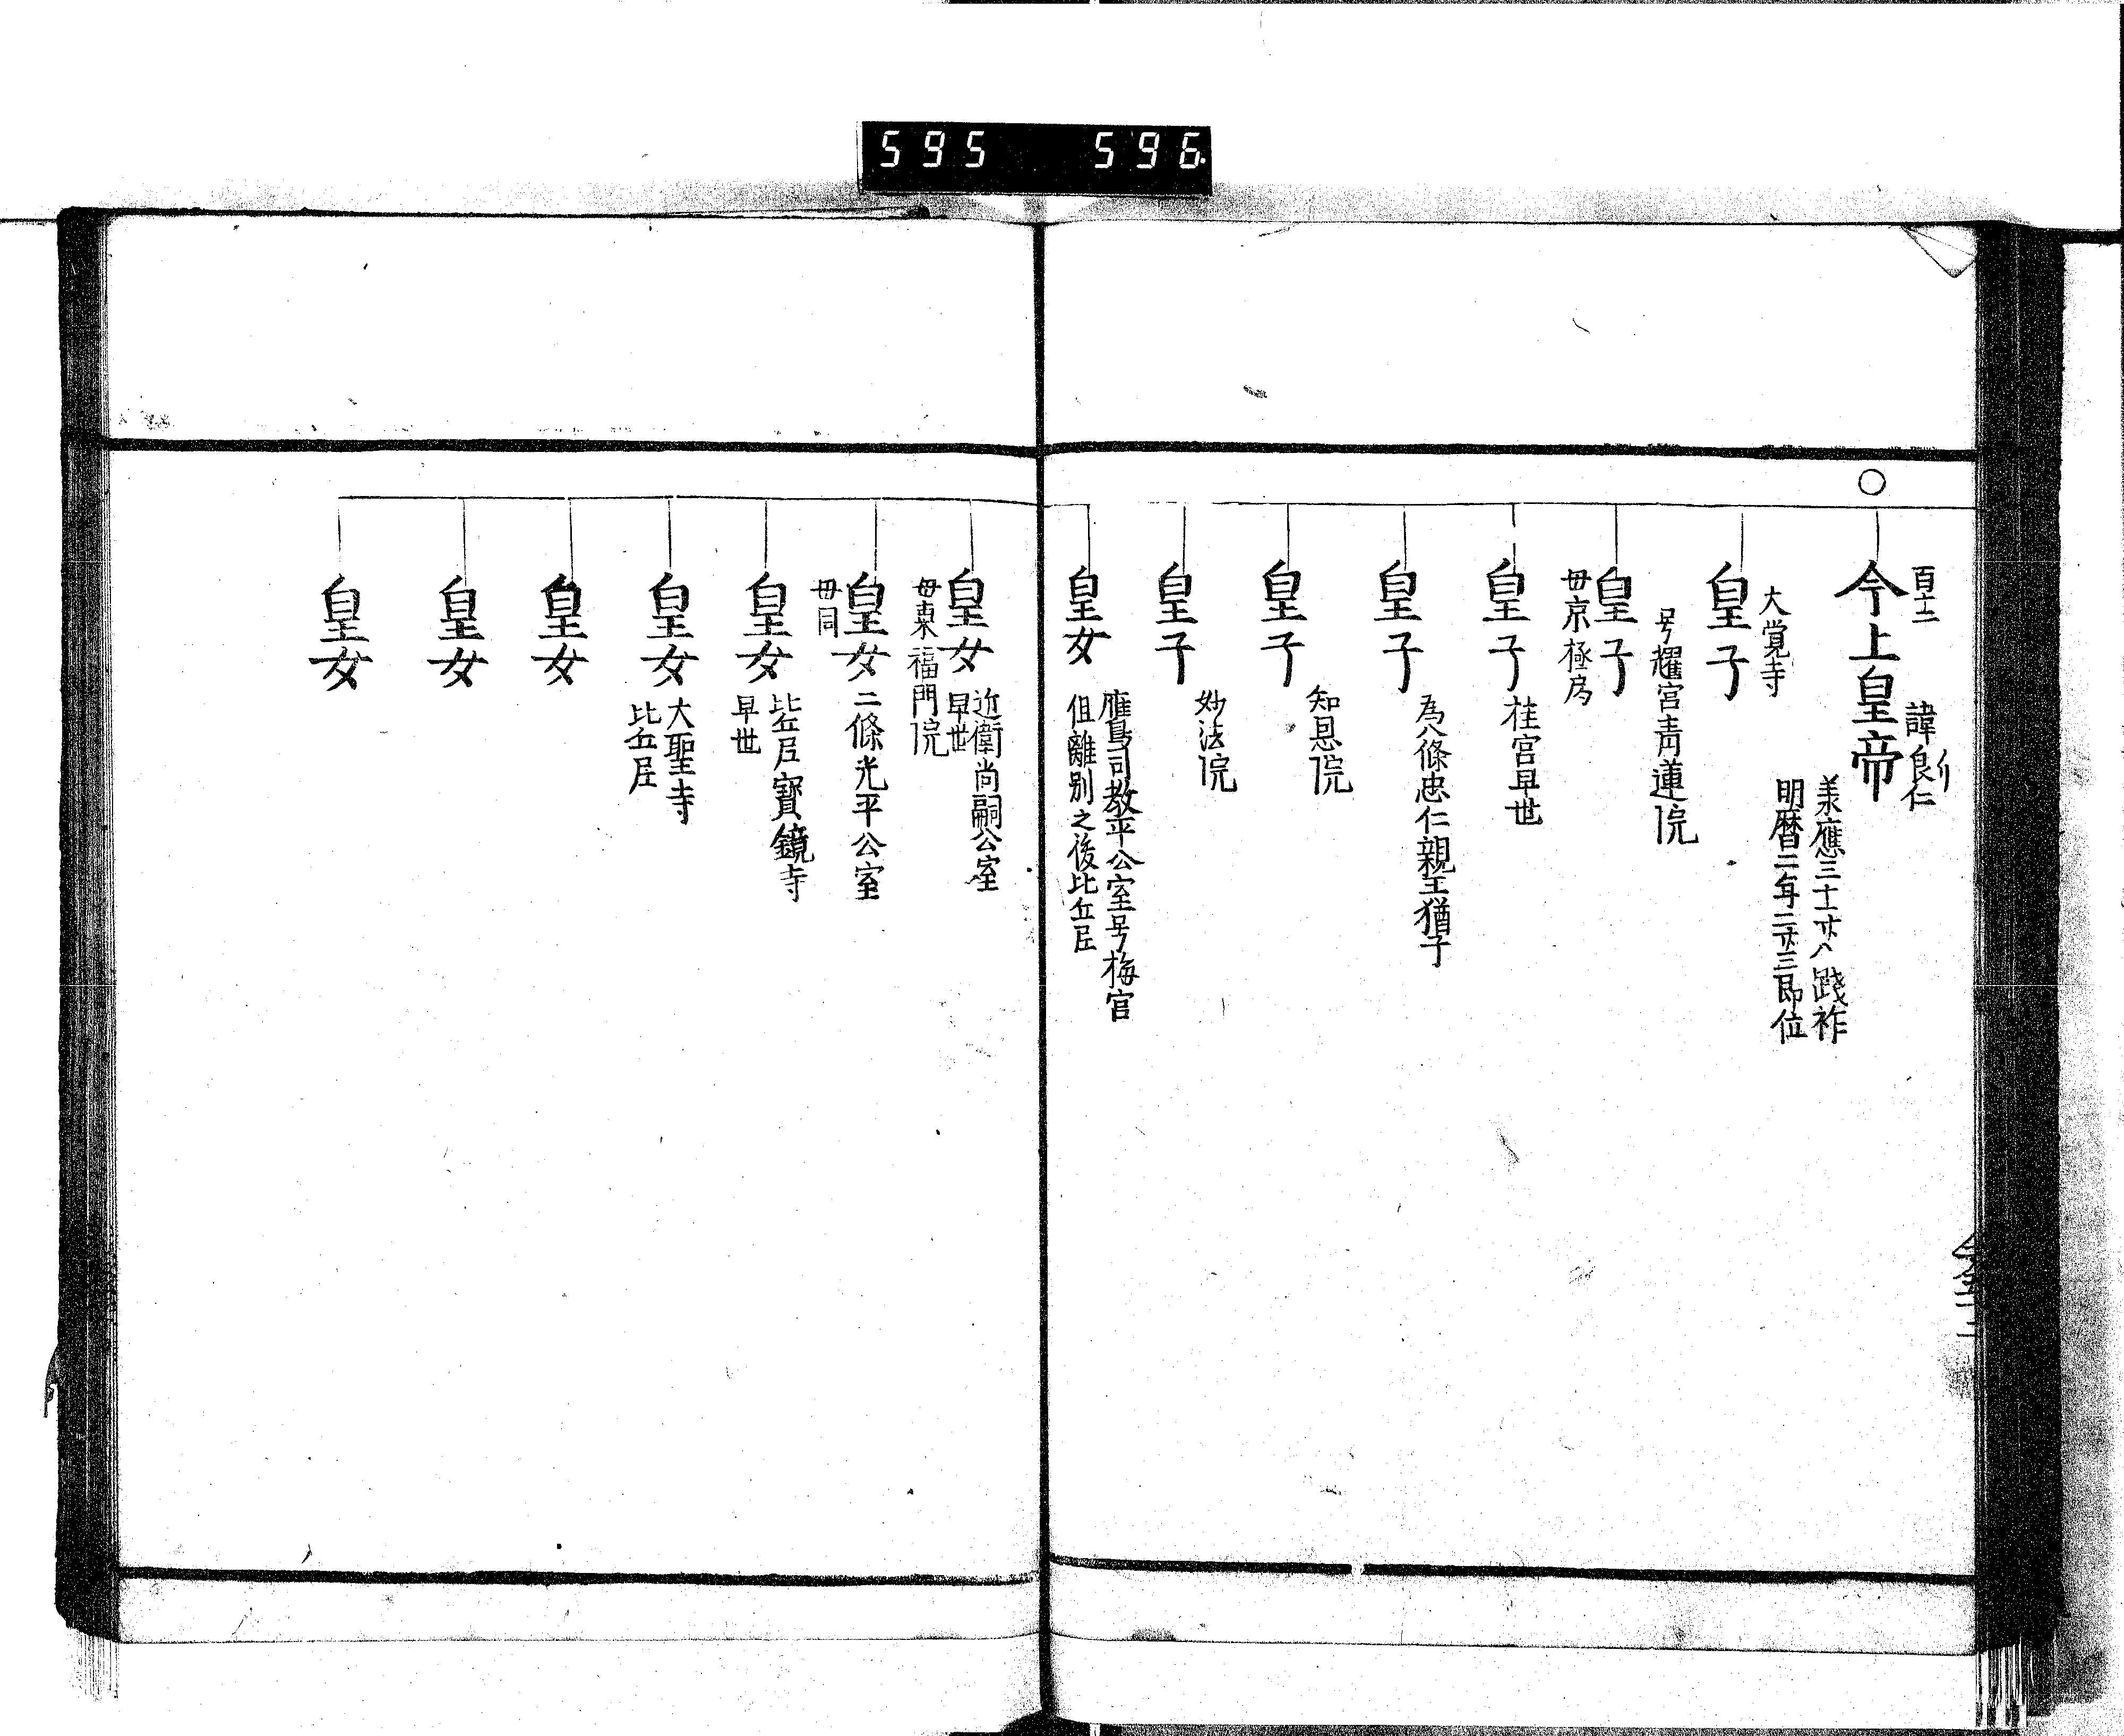 595 596
百十二
今上皇帝
諱良仁
羕應三十一廿八踐祚
明暦二年二廿三即位
皇子
大覚寺
皇子
号耀宮青蓮院
毋京極局
皇子
桂宮早世
皇子
為八條忠仁親王猶子
皇子
知恩院
皇子
妙法院
皇女
鷹司教平公室号梅宮
但離別之後比丘尼
皇女
近衛尚嗣公室
早世
毋東福門院
皇女
二條光平公室
毋同
皇女
比丘尼寳鏡寺
早世
皇女
大聖寺
比丘尼
皇女
皇女
皇女